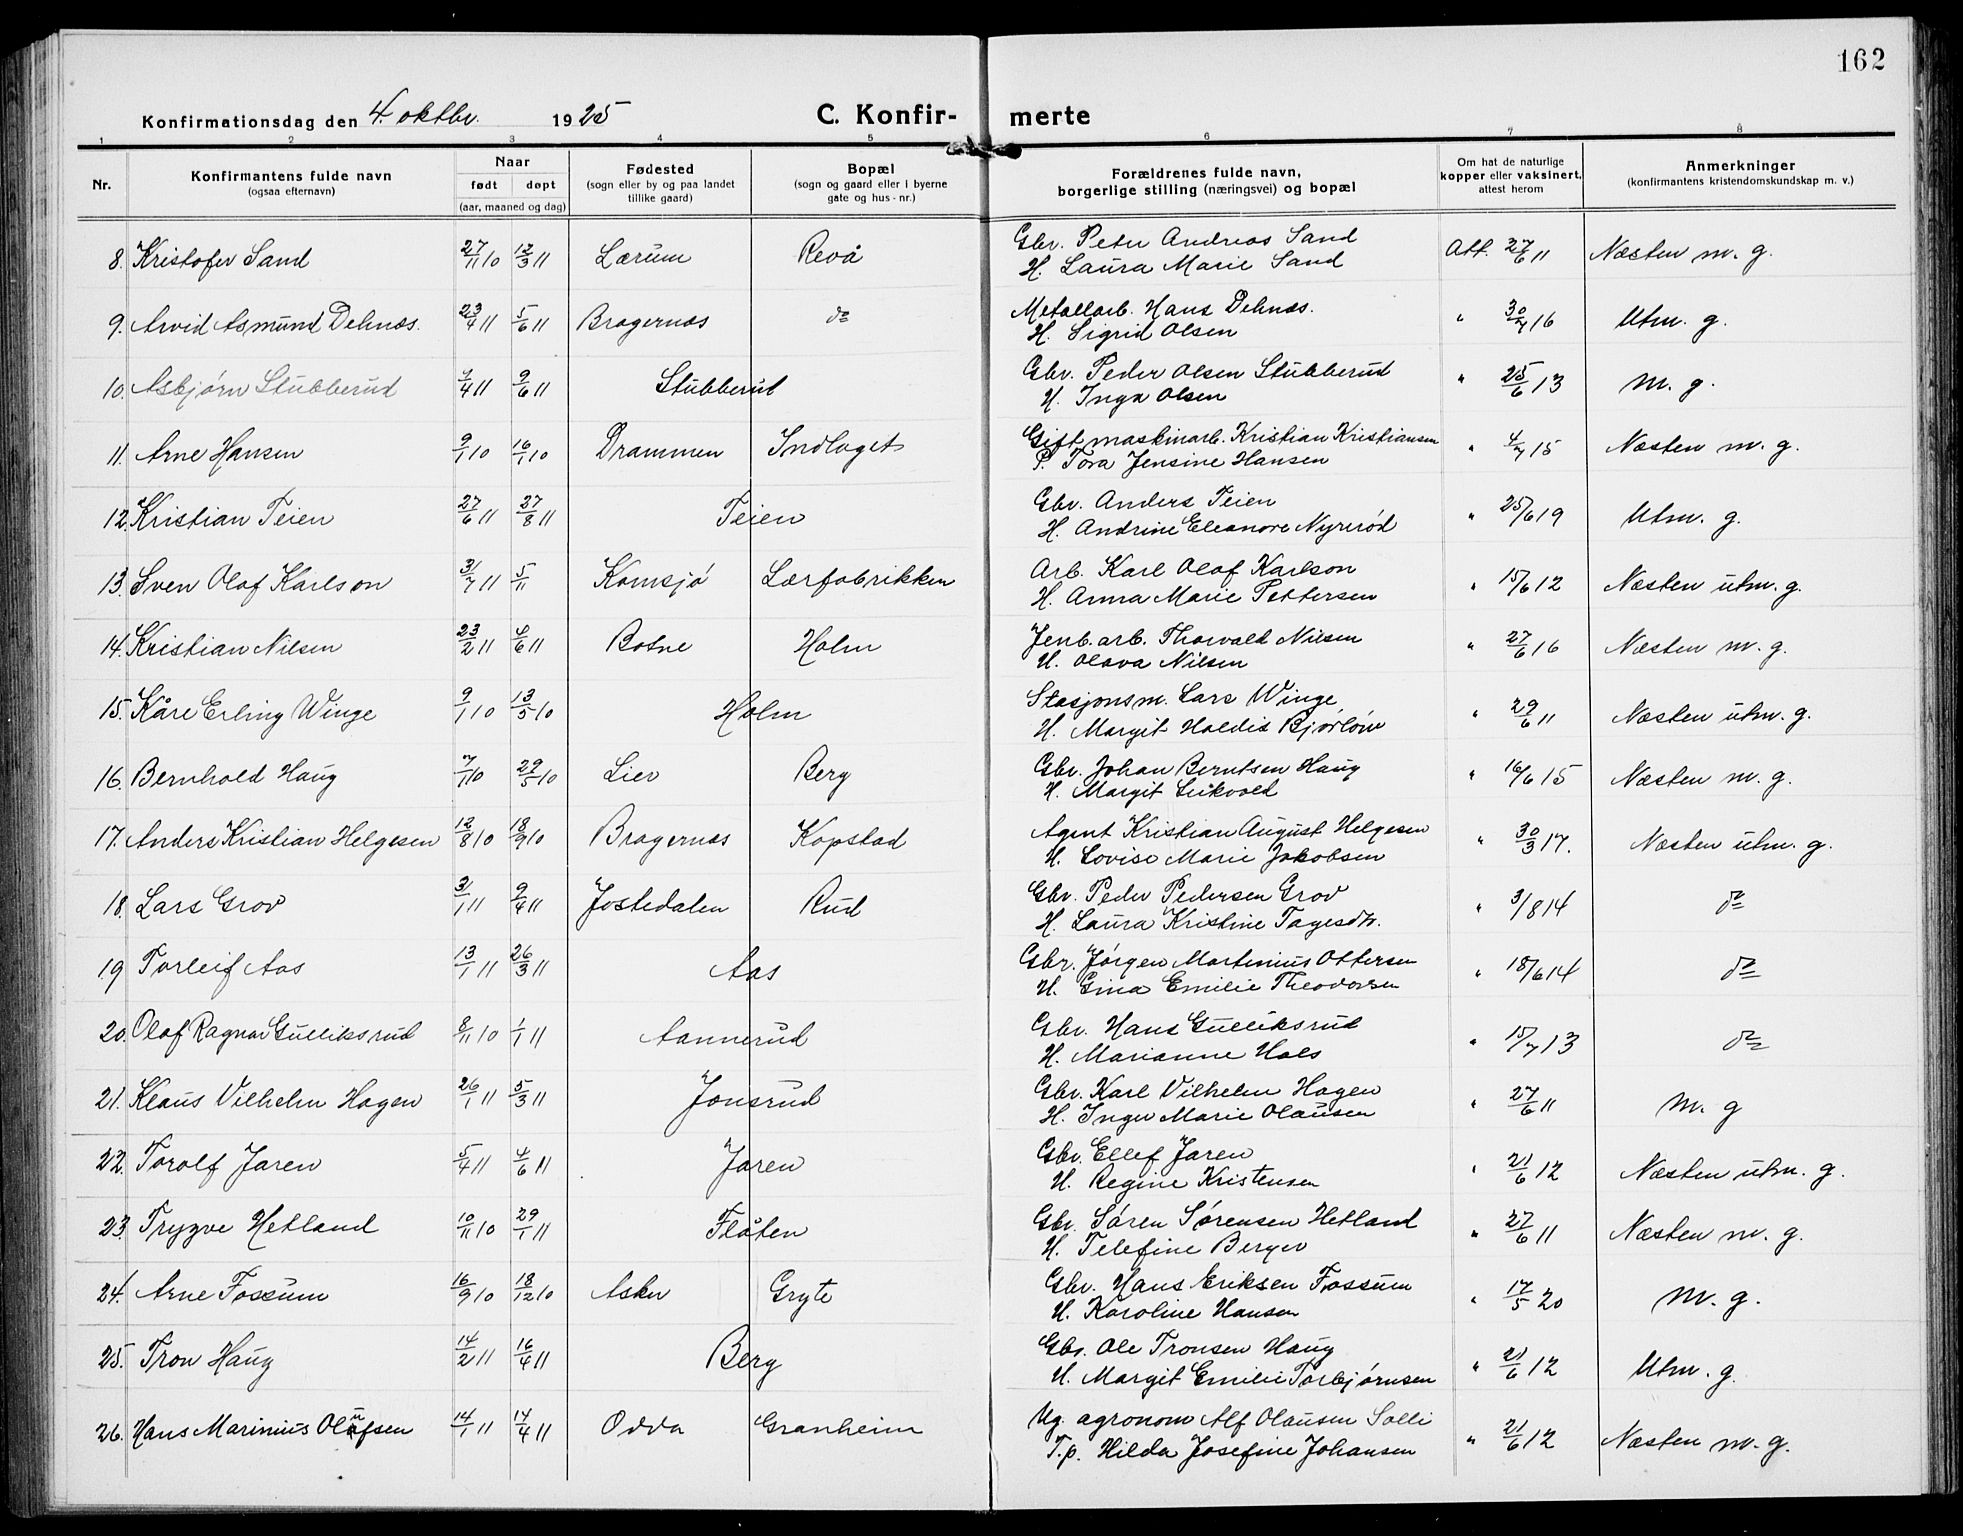 162
Konfirmationsdag den 4. oktbr. 1925 C. Konfir- merte
1 2 3 4 5 6 7 8
Nr.
Konfirmantens fulde navn
(ogsaa efternavn)
Naar
født døpt
(aar, maaned og dag)
Fødested
(sogn eller by og paa landet
tillike gaard)
Bopæl
(sogn og gaard eller i byerne
gate og hus-nr.)
Forældrenes fulde navn,
borgerlige stilling (næringsvei) og bopæl
Om hat de naturlige
kopper eller vaksinert,
attest herom
Anmerkninger
(konfirmantens kristendomskundskap m. v.)
8. Kristofer Sand 27/11 10 12/3 11 Lærum Revå Gbr. Peter Andreas Sand Att. 27/6 11 Næsten m. g.
H. Laura Marie Sand
9. Arvid Asmund Dehnæs. 23/4 11 5/6 11 Bragernæs do Metallarb. Hans Dehnæs. " 30/7 16 Utm. g.
H. Sigrid Olsen
10. Asbjørn Stubberud 7/4 11 9/6 11 Stubberud Gbr. Peder Olsen Stubberud " 25/6 13 M. g.
H. Inga Olsen
11. Arne Hansen 9/1 10 16/1 10 Drammen Indlaget Gift maskinarb. Kristian Kristiansen " 4/7 15 Næsten m. g.
P. Tora Jensine Hansen
12. Kristian Teien 27/6 11 27/8 11 Teien Gbr. Anders Teien " 25/6 19 Utm. g.
H. Andrine Eleanore Nyrerød
13. Sven Olaf Karlson 31/7 11 5/11 Komsjö Lærfabrikken Arb. Karl Olof Karlson " 15/6 12 Næsten utm. g.
H. Anna Marie Pettersen
14. Kristian Nilsen 23/2 11 4/6 11 Botne Holm Jenb. arb. Thorvald Nilsen " 27/6 16 Næsten m. g.
H. Olava Nilsen
15. Kåre Erling Winge 9/1 10 13/5 10 Holm Stasjonsm. Lars Winge " 29/6 11 Næsten utm. g.
H. Margit Haldis
16. Bernhold Haug 7/1 10 29/5 10 Lier Berg Gbr. Johan Berntsen Haug " 16/6 15 Næsten m. g.
H. Margit Leikvold
17. Anders Kristian Helgesen 12/8 10 18/9 10 Bragernæs Kopstad Agent Kristian August Helgesen " 30/3 17. Næsten utm. g.
H. Lovise Marie Jakobsen
18. Lars Grov 3/1 11 9/4 11 Jostedalen Rud Gbr. Peder Pedersen Grov " 3/8 14 do
H. Laura Kristine Tagesdtr.
19 Torleif Aas 13/1 11 26/3 11 Aas Gbr. Jørgen Martinius Ottersen " 18/6 14 do
H. Gina Emilie Theodorsen
20. Olaf Ragnar Gulliksrud 8/11 10 1/1 11 Aannerud Gbr. Hans Gulliksrud " 15/7 13 do
H. Marianne Hals
21. Klaus Vilhelm Hagen 26/1 11 5/3 11 Jonsrud Gbr. Karl Vilhelm Hagen " 27/6 11 M. g
H. Inger Marie Olausen
22. Torolf Jaren 5/4 11 4/6 11 Jaren Gbr. Ellef Jaren " 21/6 12 Næsten utm. g.
H. Regine Kristensen
23. Trygve Hetland 10/11 10 29/1 11 Flåten Gbr. Søren Sørensen Hetland " 27/6 11 Næsten m. g.
H. Telefine Berger
24. Arne Fossum 16/9 10 18/12 10 Asker Gryte Gbr. Hans Eriksen Fossum " 17/5 20 M. g.
H. Karoline Hansen
25. Tron Haug 14/2 11 16/4 11 Berg Gbr. Ole Tronsen Haug " 21/6 12 Utm. g.
H. Margit Emilie Torbjørnsen
26. Hans Marinius Olufsen 14/1 11 14/4 11 Odda Granheim Ug. agronom Alf Olausen Solli " 21/6 12 Næsten m. g.
T.p. Hilda Josefine Johansen